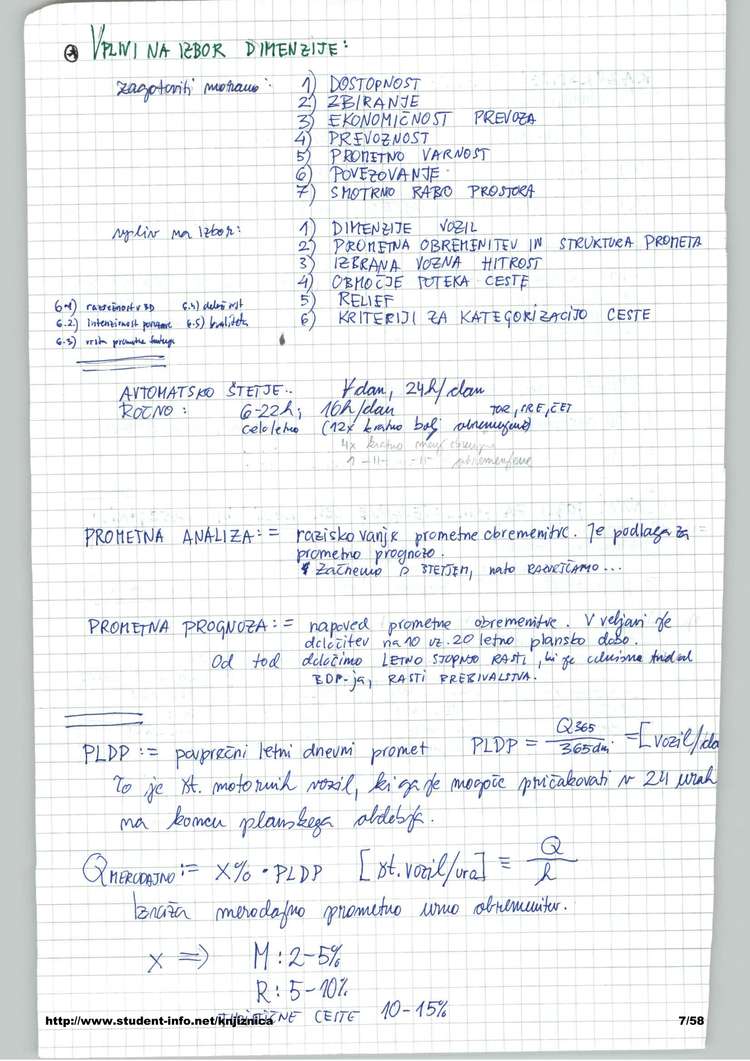 VPLIVI NA IZBOR DIMENZIJE:
zagotoviti moramo: 1) DOSTOPNOST
2) ZBIRANJE
3) EKONOMIČNOST PREVOZA
4) PREVOZNOST
5) PROMETNO VARNOST
6) POVEZOVANJE
7) SMOTRNO RABO PROSTORA
vpliv na izbor: 1) DIMENZIJE VOZIL
2) PROMETNA OBREMENITEV IN STRUKTURA PROMETA
3) IZBRANA VOZNA HITROST
4) OBMOČJE POTEKA CESTE
5) RELIEF
6) KRITERIJI ZA KATEGORIZACIJO CESTE
6.1) 6.4)
6.2) 6.5) kvaliteta
6.3) vrsta prometne
AVTOMATSKO ŠTETJE.. ∀ dan, 24h/dan
ROČNO: 6-22h, 16h/dan TOR, SRE, ČET
celoletno (12x kratno bolj obremenjene)
4x kratno manj
1 -||- -||-
PROMETNA ANALIZA := raziskovanje prometne obremenitve. Je podlaga za
prometno prognozo.
Začnemo s ŠTETJEM, nato
PROMETNA PROGNOZA := napoved prometne obremenitve. V veljavi je
določitev na 10 oz. 20 letno plansko dobo.
Od tod določimo LETNO STOPNJO RASTI, ki je odvisna tudi od
BDP-ja, RASTI PREBIVALSTVA.
PLDP := povprečni letni dnevni promet PLDP = Q365 / 365 dni = [vozil/da
To je št. motornih vozil, ki ga je mogoče pričakovati v 24 urah
na koncu planskega obdobja.
Q MERODAJNO := X% · PLDP [št. vozil/ura] ≡ Q / h
Izraža merodajno prometno urno obremenitev.
X ⇒ M: 2-5%
R: 5-10%
CESTE 10-15%
http://www.student-info.net/knjiznica 7/58